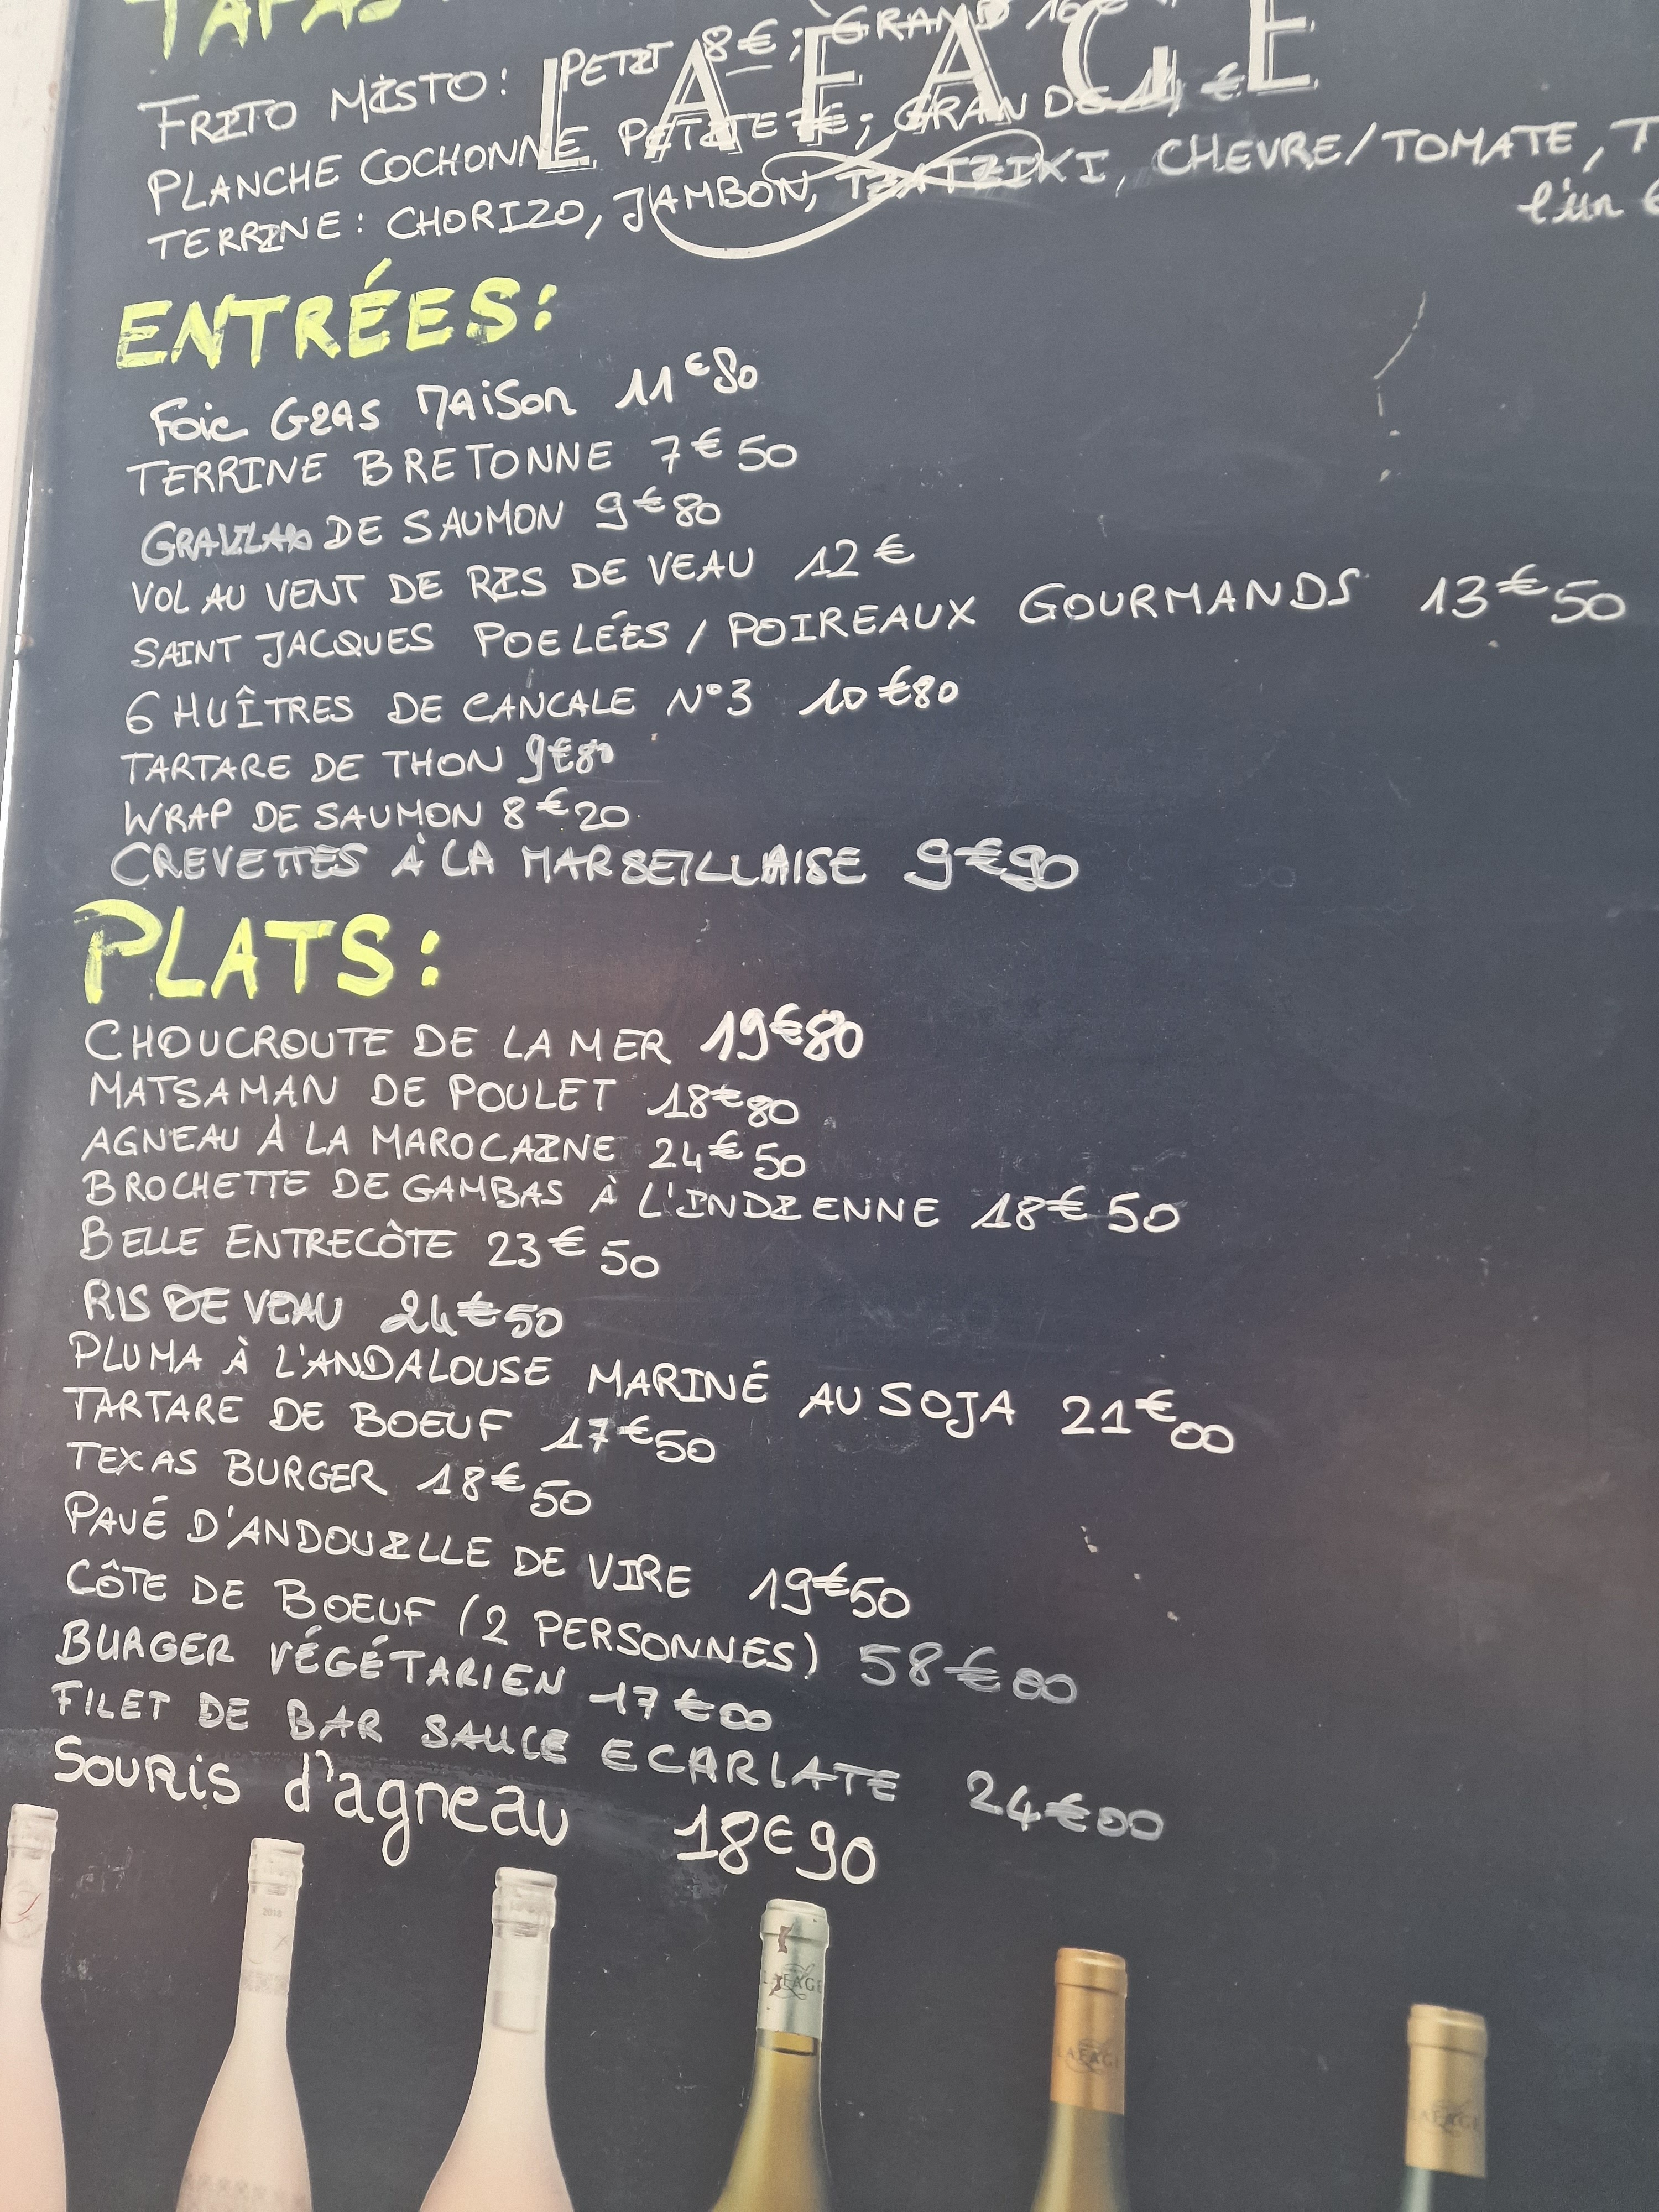 TAPAS
LAFAGE
FRITO MISTO : PETIT 8€ ; GRAND 16€
PLANCHE COCHONNE PETITE 7€ ; GRANDE 14 €
TERRINE : CHORIZO, JAMBON, TZATZIKI, CHEVRE/TOMATE, T
l'un 6
ENTRÉES :
Foie GRAS MAiSon 11€80
TERRINE BRETONNE 7€50
GRAVLAX DE SAUMON 9€80
VOL AU VENT DE RIS DE VEAU 12€
SAINT JACQUES POELÉES / POIREAUX GOURMANDS 13€50
6 HUÎTRES DE CANCALE N°3 10€80
TARTARE DE THON 9€80
WRAP DE SAUMON 8€20
CREVETTES À LA MARSEILLAISE 9€90
PLATS :
CHOUCROUTE DE LA MER 19€80
MATSAMAN DE POULET 18€80
AGNEAU À LA MAROCAINE 24€50
BROCHETTE DE GAMBAS À L'INDIENNE 18€50
BELLE ENTRECÔTE 23€50
RIS DE VEAU 24€50
PLUMA À L'ANDALOUSE MARINÉ AU SOJA 21€00
TARTARE DE BOEUF 17€50
TEXAS BURGER 18€50
PAVÉ D'ANDOUILLE DE VIRE 19€50
CÔTE DE BOEUF (2 PERSONNES) 58€00
BURGER VÉGÉTARIEN 17€00
FILET DE BAR SAUCE ECARLATE 24€00
SOURiS d'agneau 18€90
2018
LAFAGE
LAFAGE
LAFAGE